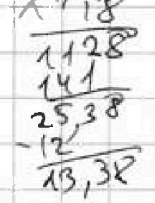 1,8
1128
141
25,38
-12
13,38